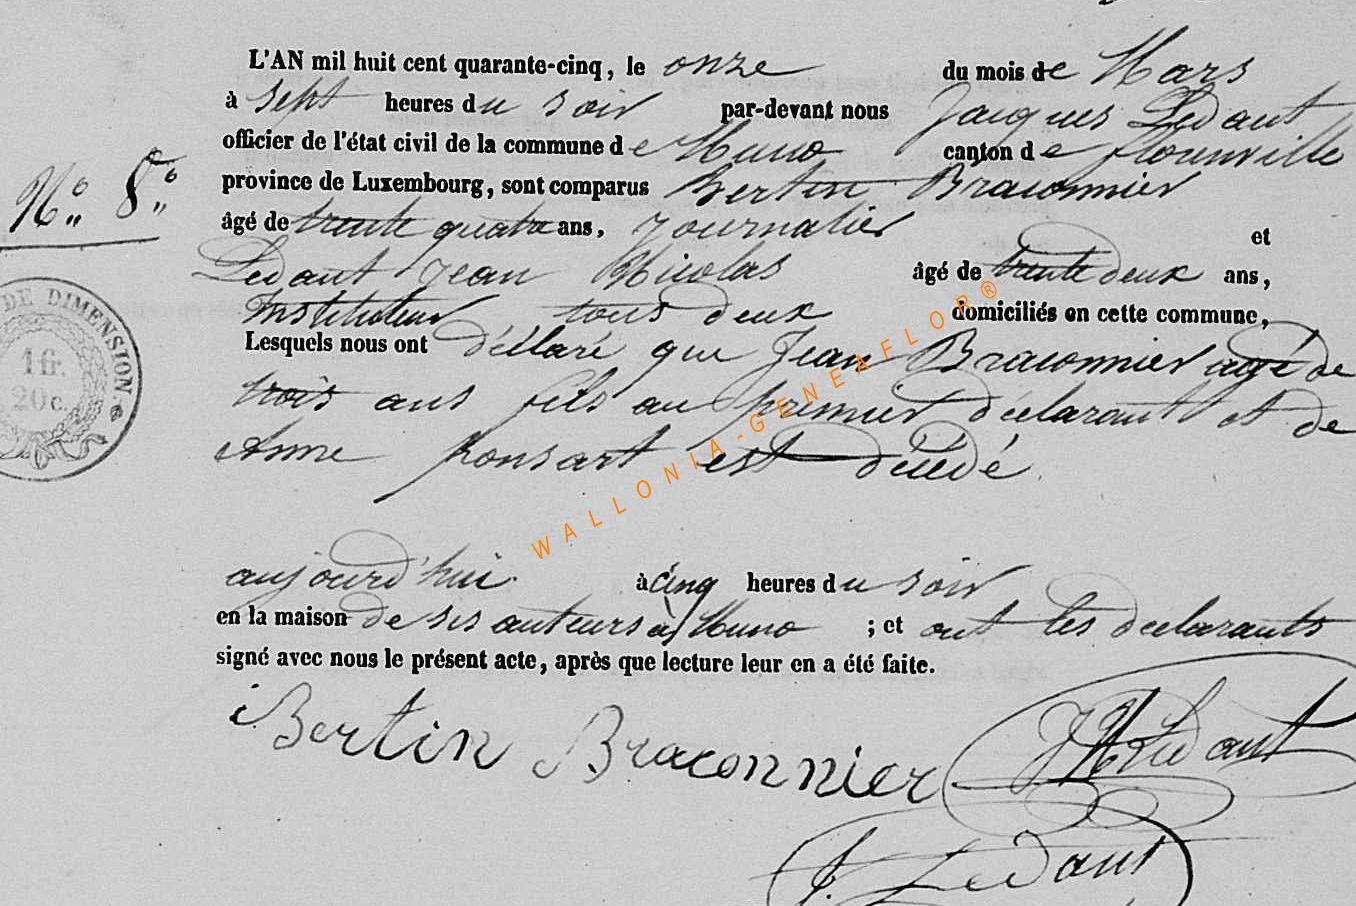 L'AN mil huit cent quarante-cinq, le onze du mois de Mars
à sept heures du soir par-devant nous Jacques Ledant
officier de l'état civil de la commune de Muno canton de florenville
province de Luxembourg, sont comparus Bertin Braconnier
N° 8°
âgé de trente quatre ans, Journalier et
Ledant Jean Nicolas âgé de trente deux ans,
Instituteur tous deux domiciliés en cette commune,
Lesquels nous ont déclaré que Jean Braconnier agé de
trois ans fils au premier déclarant et de
Anne Ponsart est décédé
aujourd'hui à cinq heures du soir
en la maison de ses auteurs à Muno ; et ont les déclarants
signé avec nous le présent acte, après que lecture leur en a été faite.
Bertin Braconnier JNLedant
J. Ledant
DE DIMENSION.
1 fr.
20 c.
WALLONIA-GENEAFLOR®